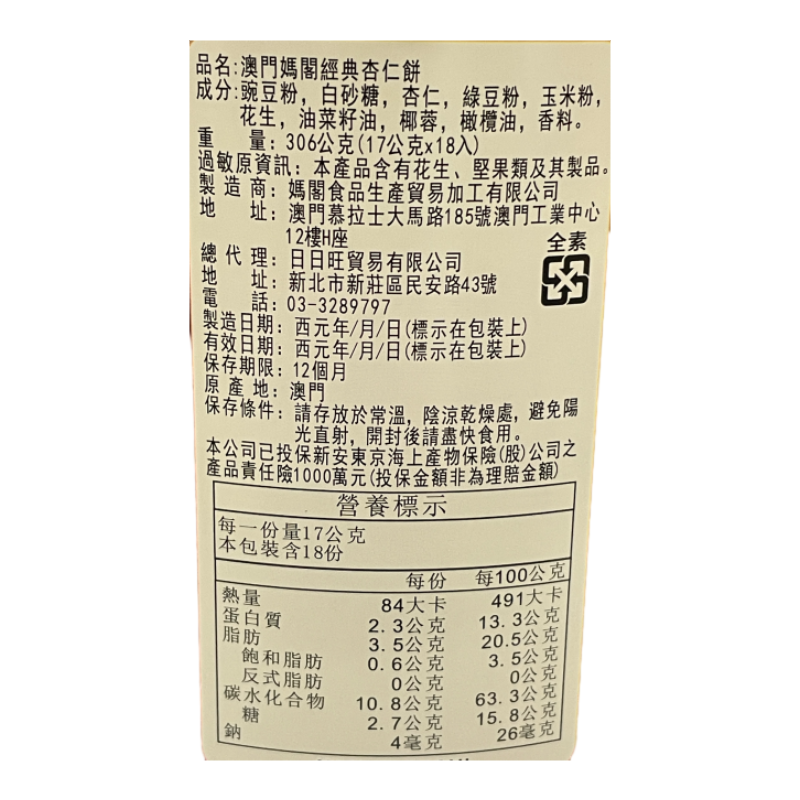 品名:澳門媽閣經典杏仁餅
成分:豌豆粉, 白砂糖, 杏仁, 綠豆粉, 玉米粉,
花生, 油菜籽油, 椰蓉, 橄欖油, 香料。
重 量: 306公克(17公克x18入)
過敏原資訊: 本產品含有花生、堅果類及其製品。
製 造 商: 媽閣食品生產貿易加工有限公司
地 址: 澳門慕拉士大馬路185號澳門工業中心
12樓H座
全素
總 代 理: 日日旺貿易有限公司
地 址: 新北市新莊區民安路43號
電 話: 03-3289797
製造日期: 西元年/月/日(標示在包裝上)
有效日期: 西元年/月/日(標示在包裝上)
保存期限: 12個月
原 產 地: 澳門
保存條件: 請存放於常溫, 陰涼乾燥處, 避免陽
光直射, 開封後請盡快食用。
本公司已投保新安東京海上產物保險(股)公司之
產品責任險1000萬元(投保金額非為理賠金額)
營養標示
每一份量17公克
本包裝含18份
每份 每100公克
熱量 84大卡 491大卡
蛋白質 2.3公克 13.3公克
脂肪 3.5公克 20.5公克
飽和脂肪 0.6公克 3.5公克
反式脂肪 0公克 0公克
碳水化合物 10.8公克 63.3公克
糖 2.7公克 15.8公克
鈉 4毫克 26毫克